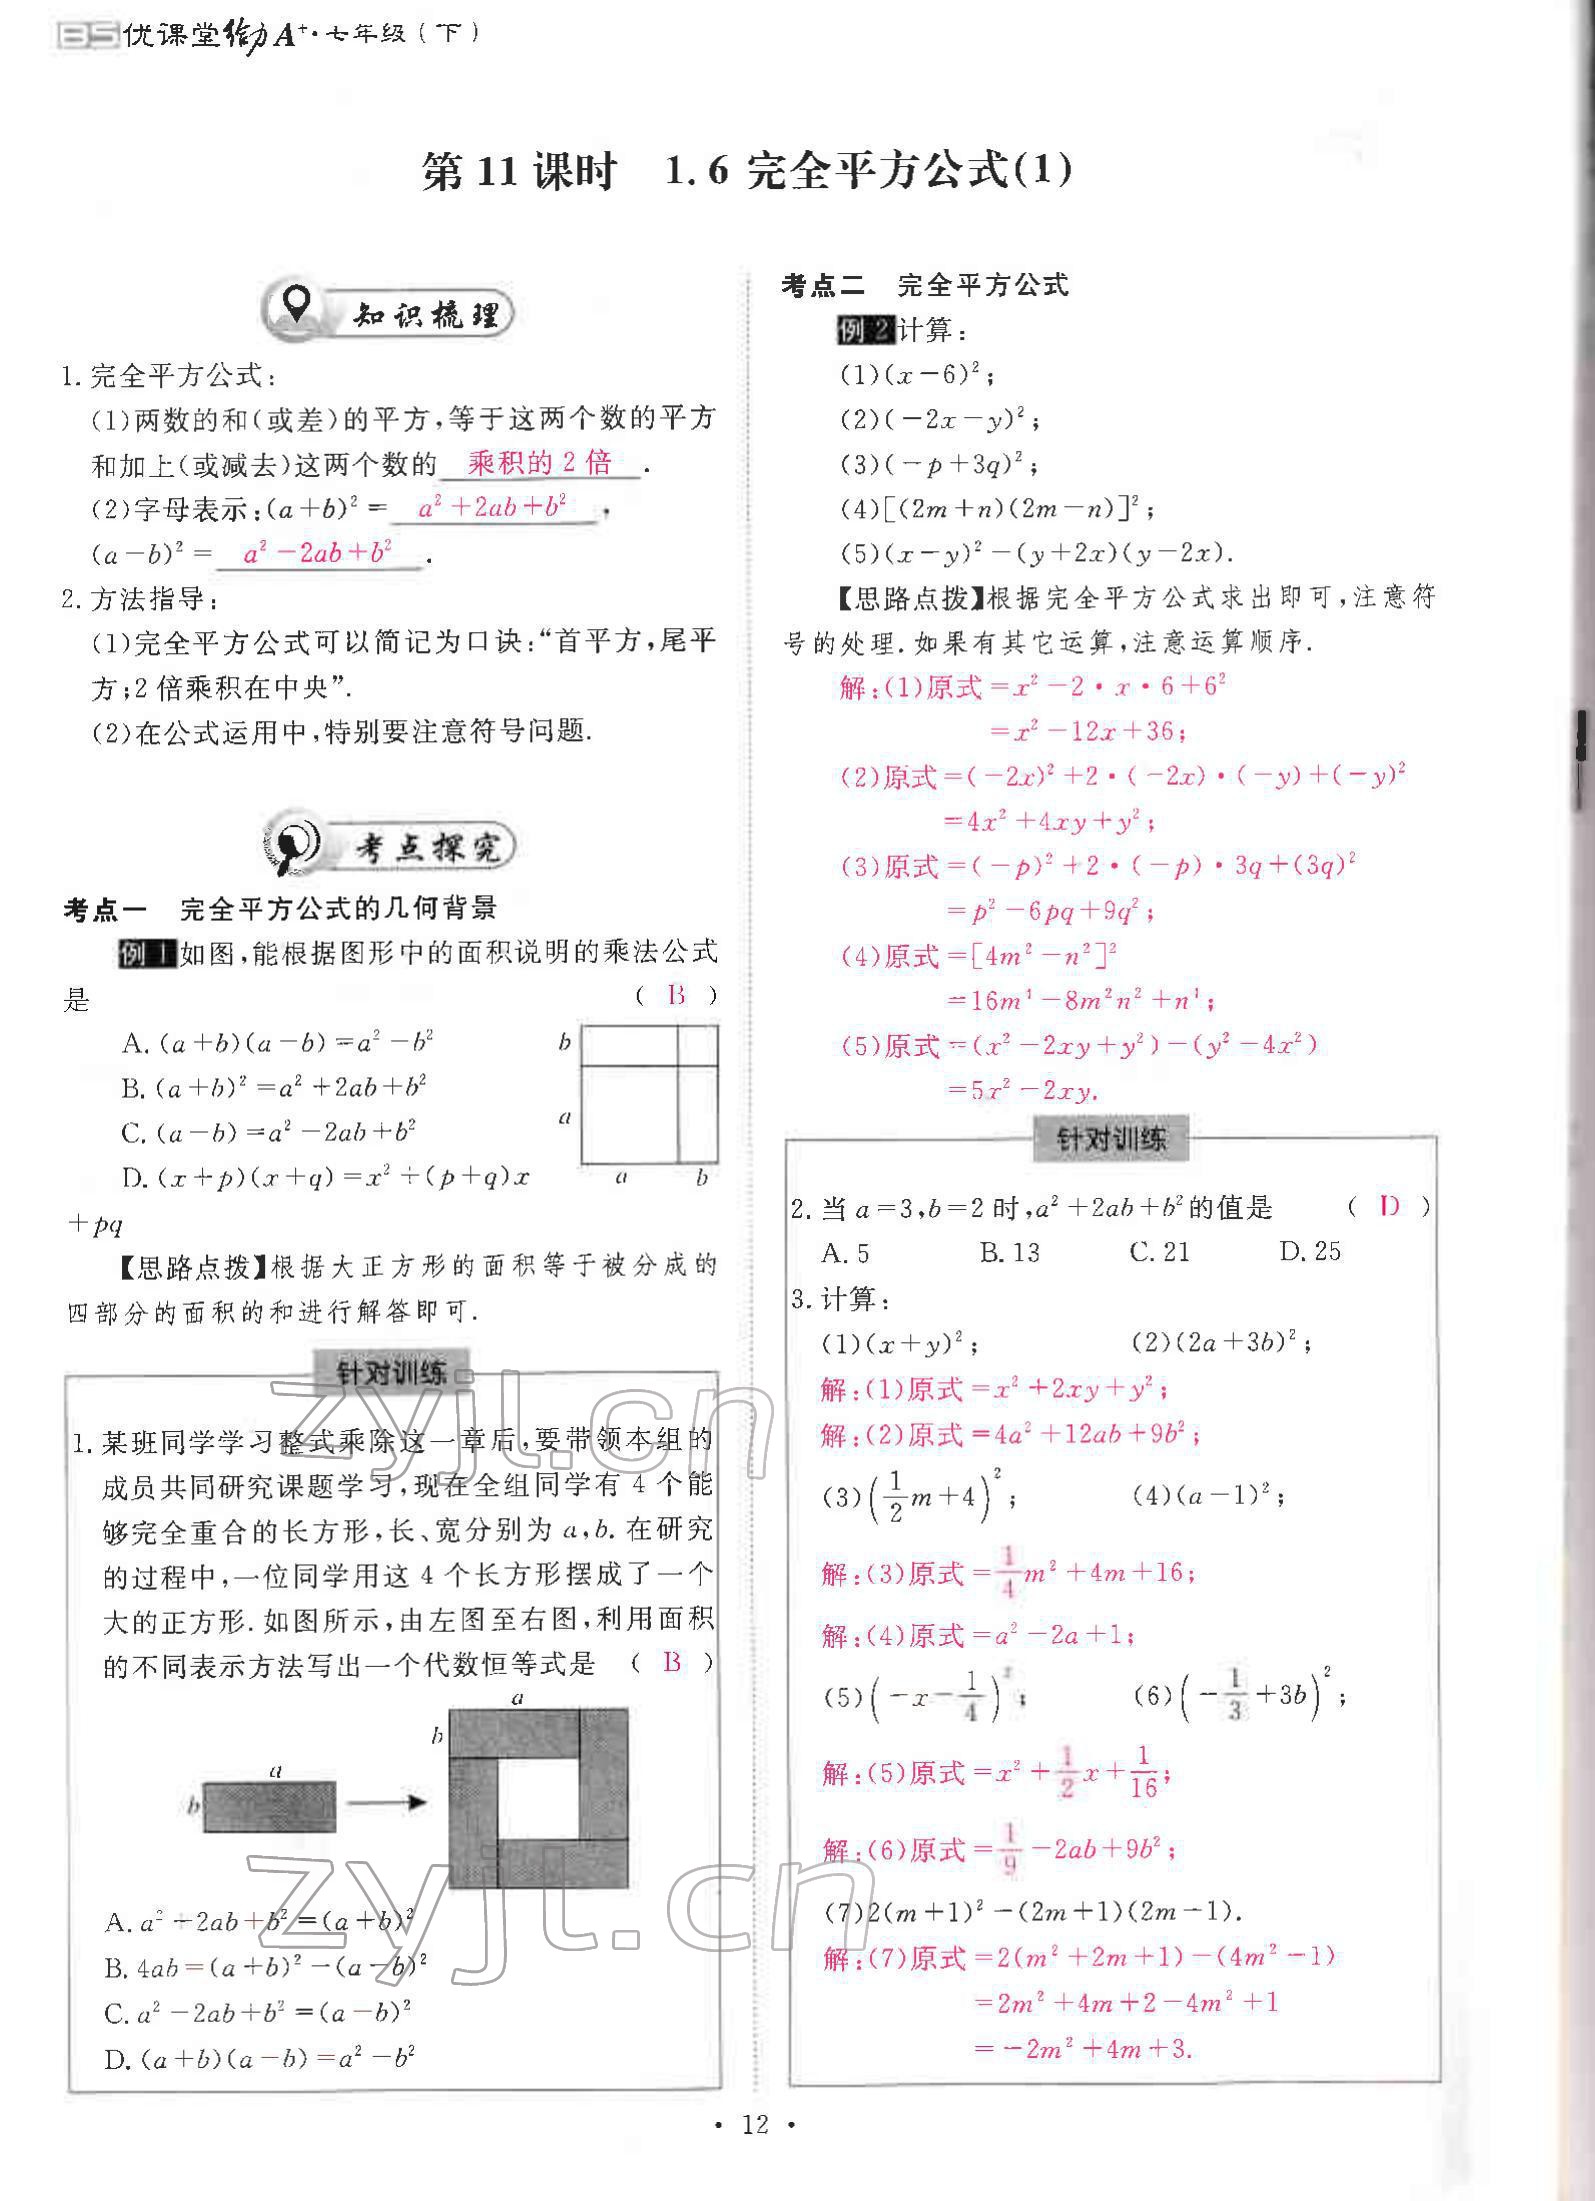 BS优课堂给力A⁺·七年级(下)
第11课时 1.6 完全平方公式(1)
知识梳理
1.完全平方公式:
(1)两数的和(或差)的平方,等于这两个数的平方
和加上(或减去)这两个数的 乘积的2倍 .
(2)字母表示:(a+b)²= a²+2ab+b² ,
(a-b)²= a²-2ab+b² .
2.方法指导:
(1)完全平方公式可以简记为口诀:“首平方,尾平
方;2倍乘积在中央”.
(2)在公式运用中,特别要注意符号问题.
考点探究
考点一 完全平方公式的几何背景
例1 如图,能根据图形中的面积说明的乘法公式
是 ( B )
A.(a+b)(a-b)=a²-b²
B.(a+b)²=a²+2ab+b²
C.(a-b)=a²-2ab+b²
D.(x+p)(x+q)=x²+(p+q)x
+pq
b
a
a b
【思路点拨】根据大正方形的面积等于被分成的
四部分的面积的和进行解答即可.
针对训练
1.某班同学学习整式乘除这一章后,要带领本组的
成员共同研究课题学习,现在全组同学有4个能
够完全重合的长方形,长、宽分别为a,b.在研究
的过程中,一位同学用这4个长方形摆成了一个
大的正方形.如图所示,由左图至右图,利用面积
的不同表示方法写出一个代数恒等式是 ( B )
a
b
a
b
A.a²+2ab+b²=(a+b)²
B.4ab=(a+b)²-(a-b)²
C.a²-2ab+b²=(a-b)²
D.(a+b)(a-b)=a²-b²
考点二 完全平方公式
例2 计算:
(1)(x-6)²;
(2)(-2x-y)²;
(3)(-p+3q)²;
(4)[(2m+n)(2m-n)]²;
(5)(x-y)²-(y+2x)(y-2x).
【思路点拨】根据完全平方公式求出即可,注意符
号的处理.如果有其它运算,注意运算顺序.
解:(1)原式=x²-2·x·6+6²
=x²-12x+36;
(2)原式=(-2x)²+2·(-2x)·(-y)+(-y)²
=4x²+4xy+y²;
(3)原式=(-p)²+2·(-p)·3q+(3q)²
=p²-6pq+9q²;
(4)原式=[4m²-n²]²
=16m⁴-8m²n²+n⁴;
(5)原式=(x²-2xy+y²)-(y²-4x²)
=5x²-2xy.
针对训练
2.当a=3,b=2时,a²+2ab+b²的值是 ( D )
A.5 B.13 C.21 D.25
3.计算:
(1)(x+y)²; (2)(2a+3b)²;
解:(1)原式=x²+2xy+y²;
解:(2)原式=4a²+12ab+9b²;
(3)(1/2m+4)²; (4)(a-1)²;
解:(3)原式=1/4m²+4m+16;
解:(4)原式=a²-2a+1;
(5)(-x-1/4)²; (6)(-1/3+3b)²;
解:(5)原式=x²+1/2x+1/16;
解:(6)原式=1/9-2ab+9b²;
(7)2(m+1)²-(2m+1)(2m-1).
解:(7)原式=2(m²+2m+1)-(4m²-1)
=2m²+4m+2-4m²+1
=-2m²+4m+3.
zyjl.cn
zyjl.cn
·12·